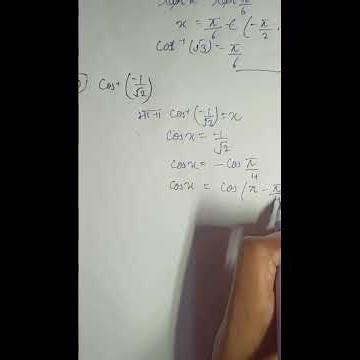 x = π/6 ∈ (-π/2,
Cot⁻¹(√3) = π/6
Cos⁻¹(-1/√2)
माना Cos⁻¹(-1/√2) = x
Cos x = -1/√2
Cos x = -Cos π/4
Cos x = Cos(π - π/4